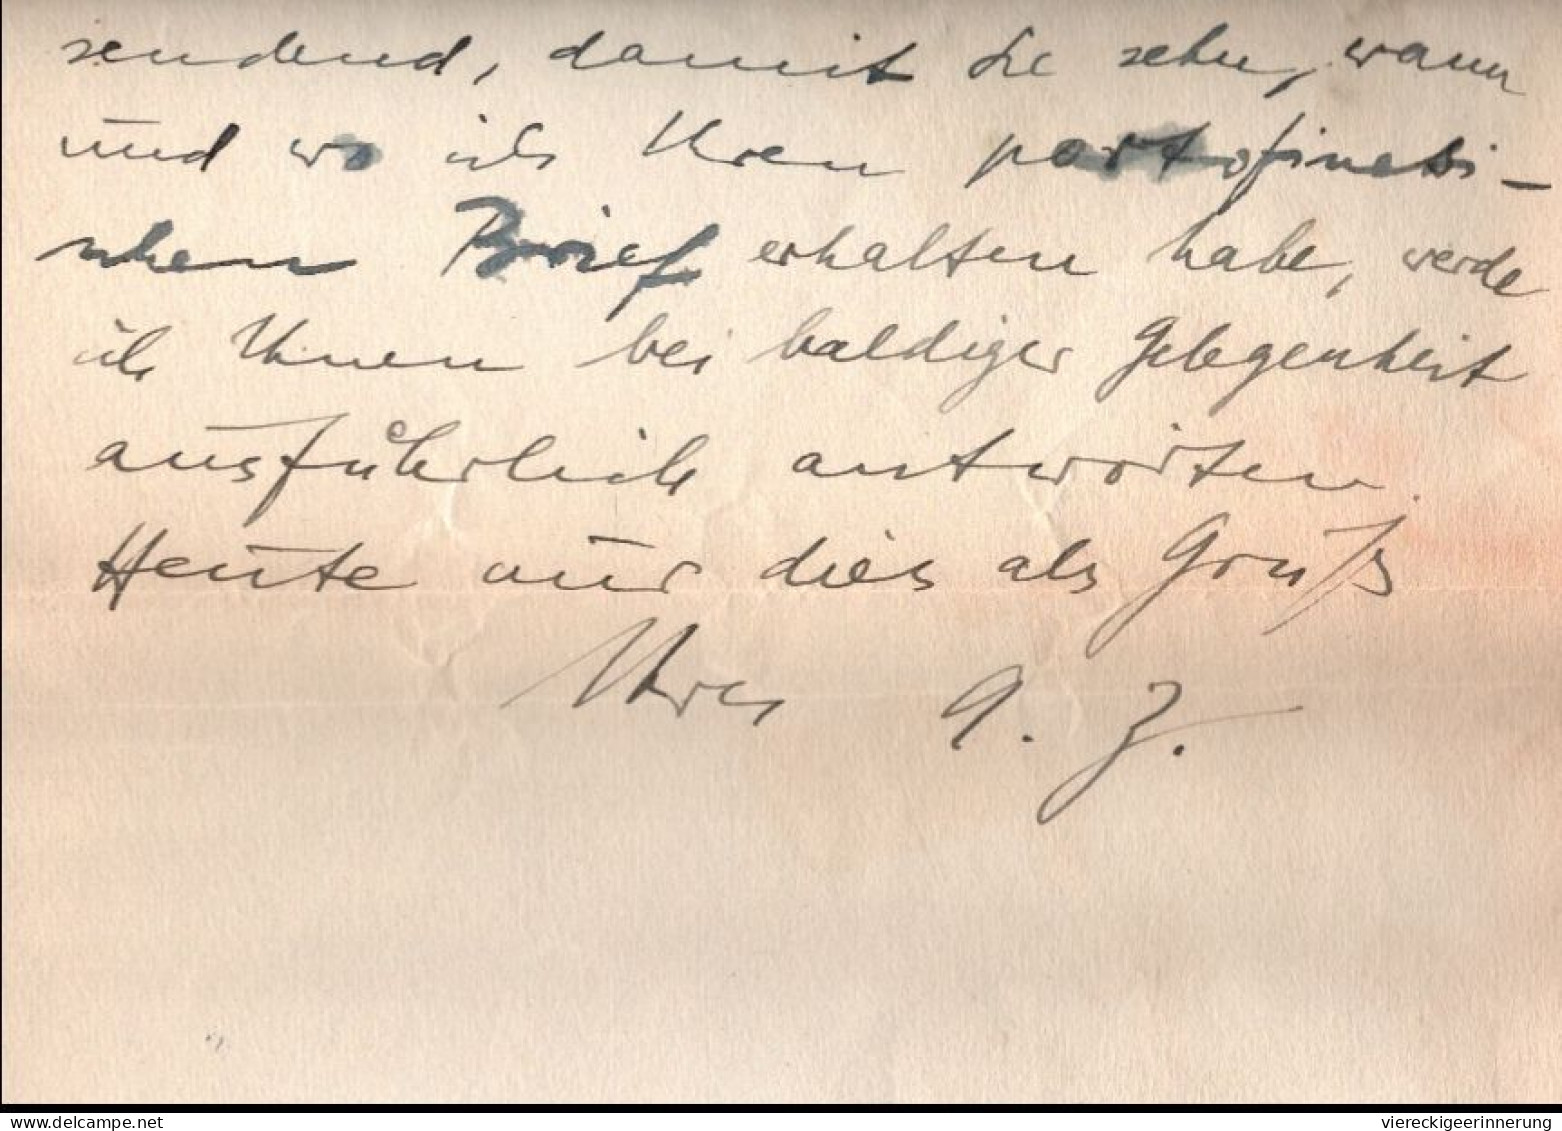 sendend, damit Sie sehn, wann
und wo ich Ihren portofinesi-
schen Brief erhalten habe, werde
ich Ihnen bei baldiger Gelegenheit
ausführlich antworten.
Heute nur dies als Gruß
Ihres A. Z.
www.delcampe.net
viereckigeerinnerung